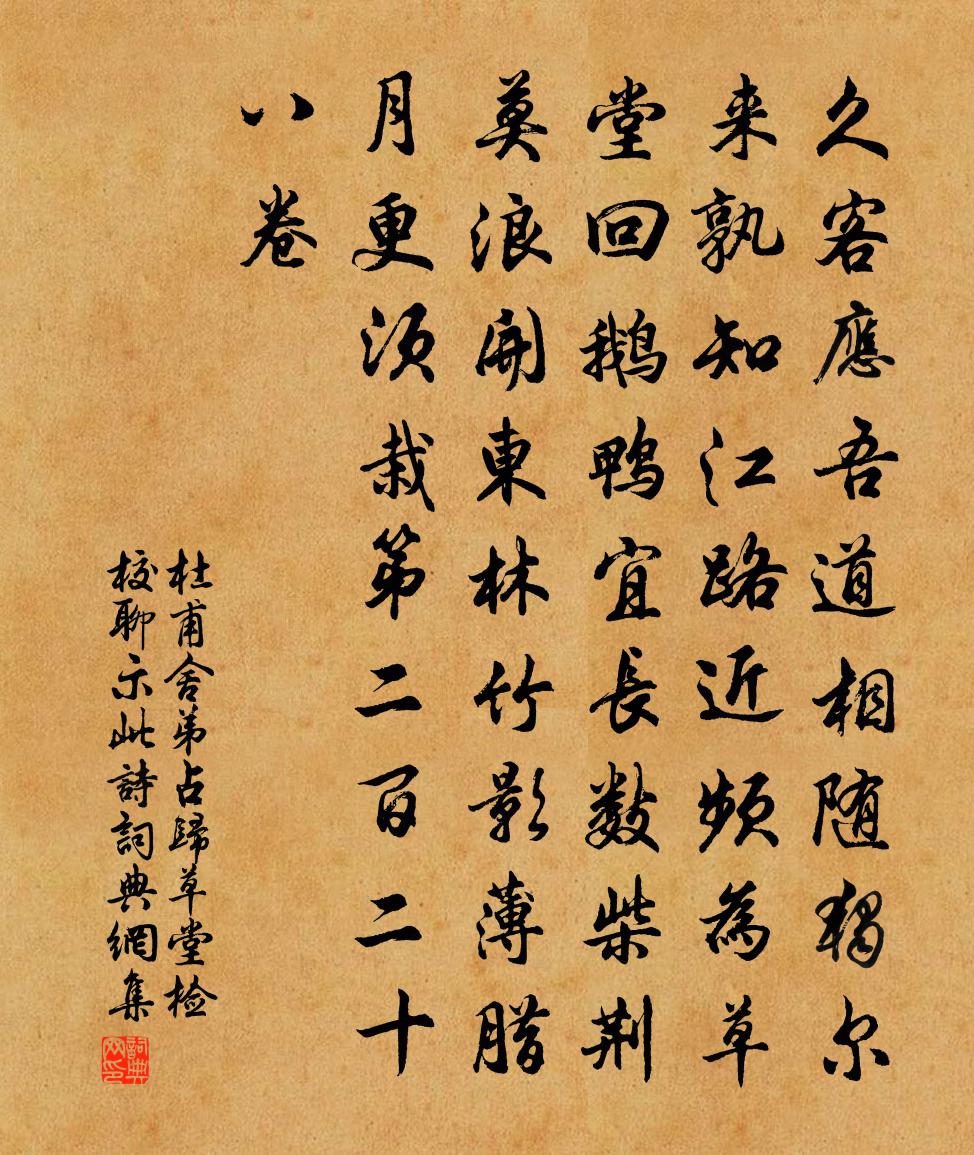 久客應吾道相随獨尔
来孰知江路近頻為草
堂回鵝鴨宜長數柴荆
莫浪開東林竹影薄腊
月更須栽第二百二十
八卷
杜甫舍弟占歸草堂检
校聊示此詩詞典網集
詞典网印